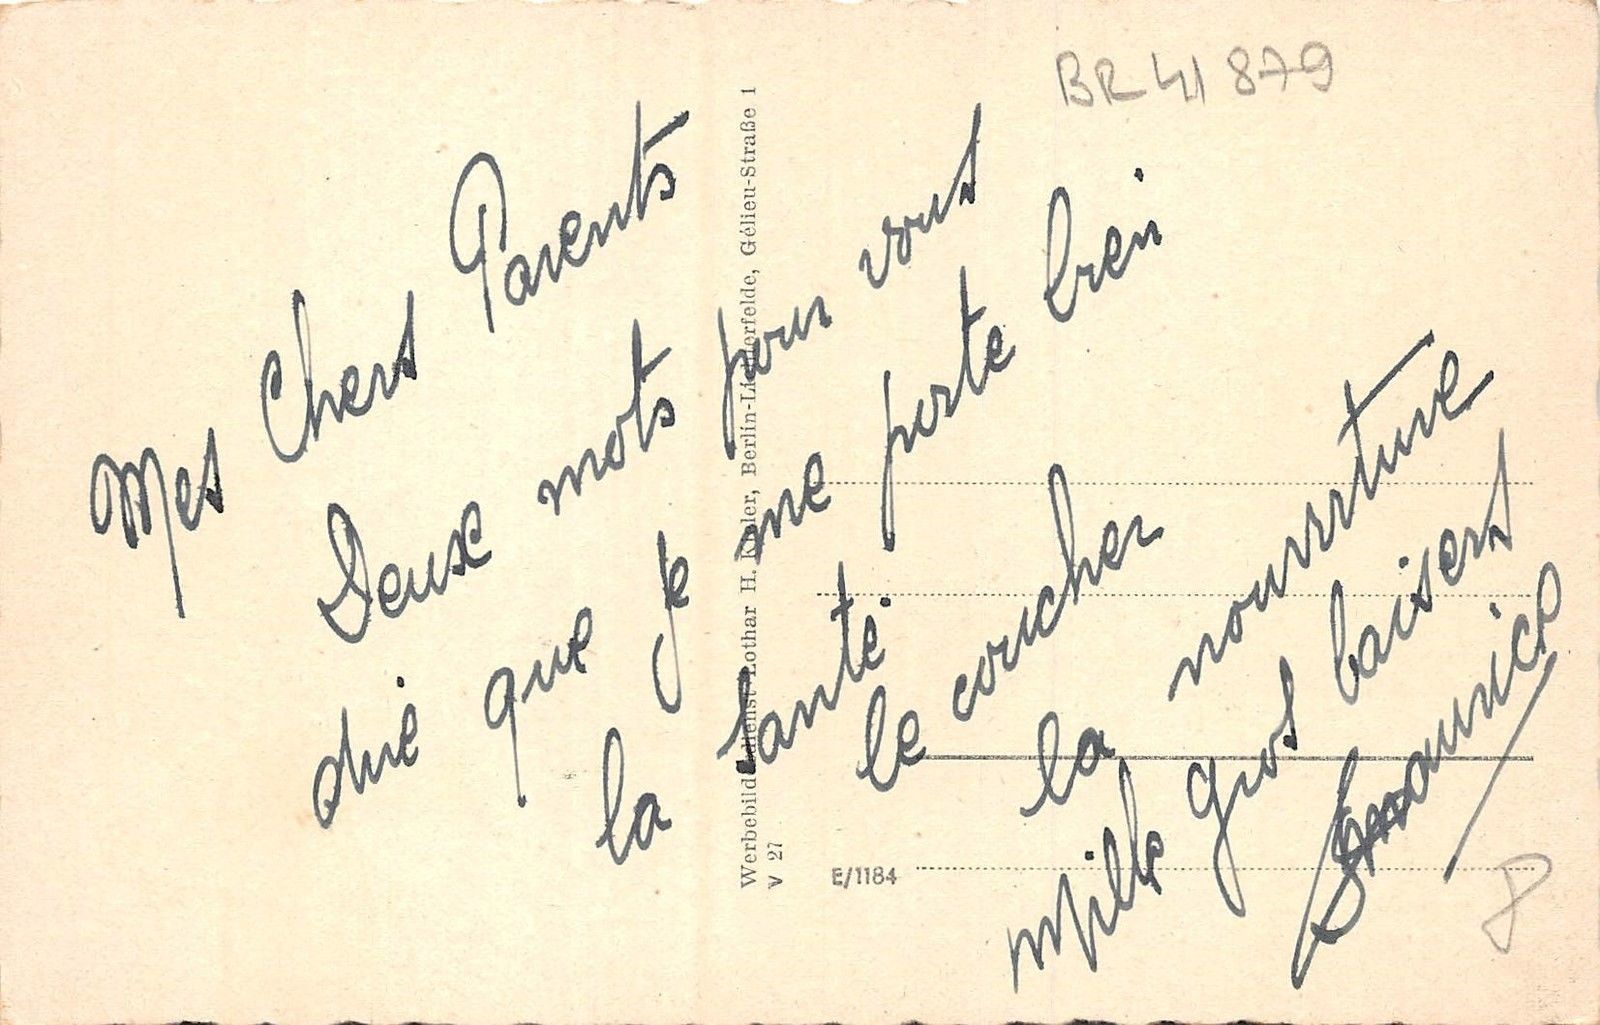 BR 41 879
Mes Chers Parents
Deux mots pour vous
dire que je me porte bien
la santé.
le coucher
la nourriture
mille gros baisers
Maurice
Lothar H. Berlin-Lichterfelde, Gélieu-Straße 1
V 27
E/1184